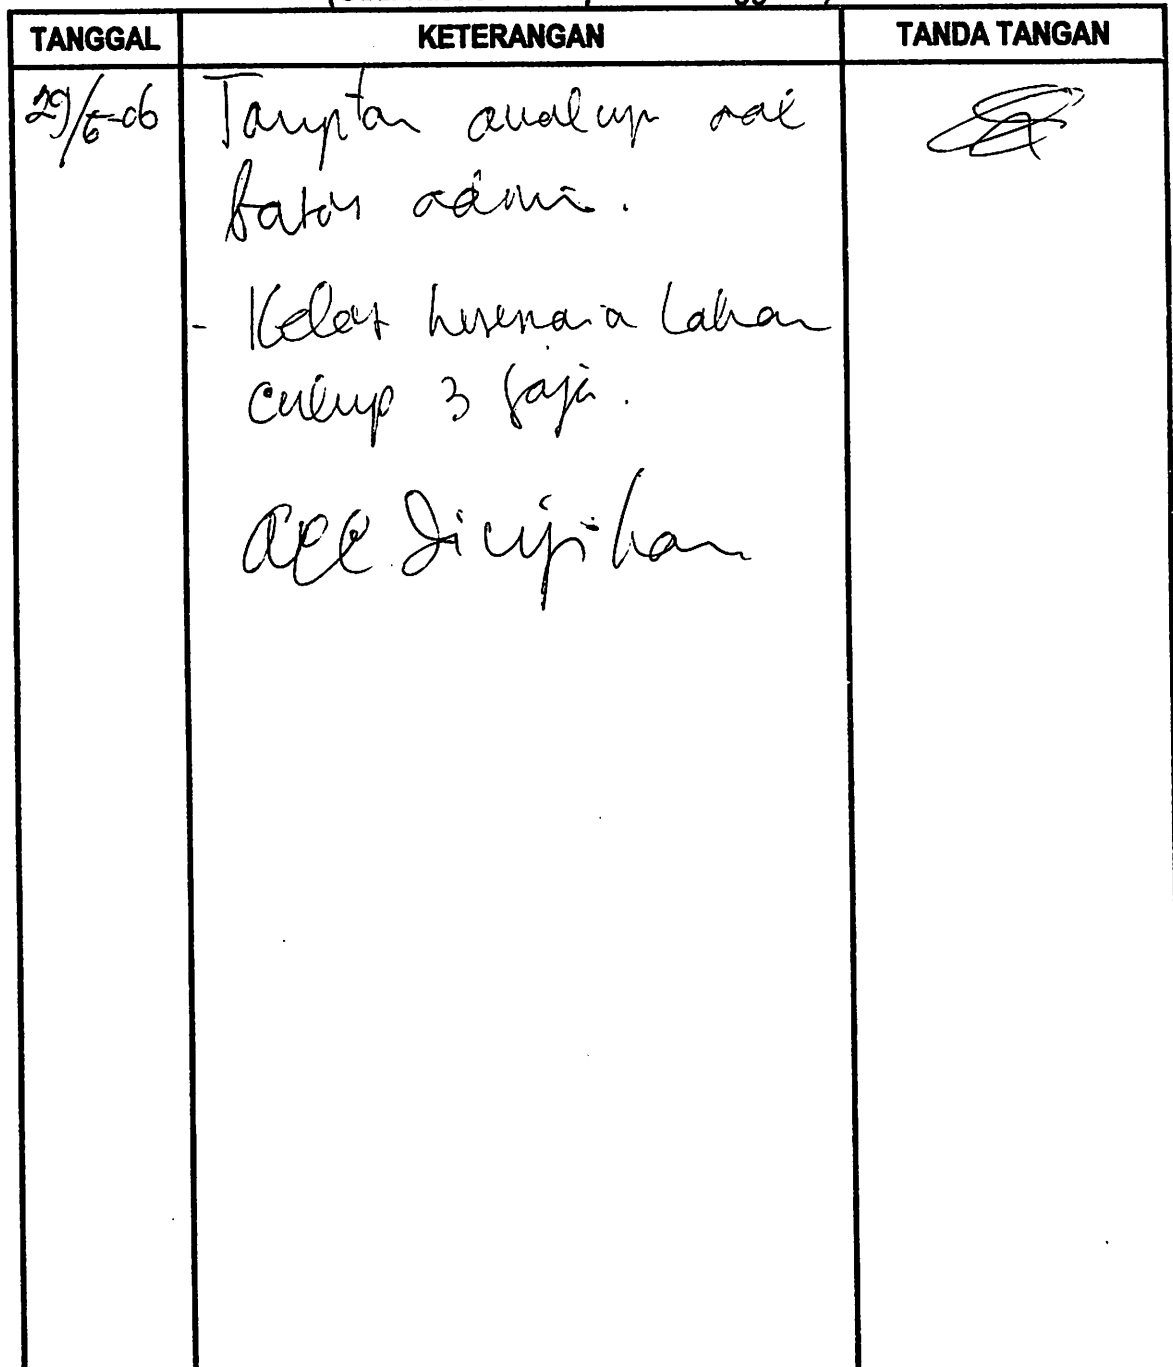 TANGGAL KETERANGAN TANDA TANGAN
29/6-06 Tampilan
batas admi.
- Kelas kesesuaia lahan
cukup 3 saja.
acc Diujikan